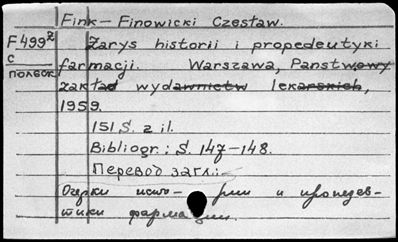 Fink-Finowicki Czesław.
F.499²
с
польск.
Zarys historii i propedeutyki
farmacji. Warszawa, Państwowy
zakład wydawnictw lekarskich,
1959.
151 S. z il.
Bibliogr.: S. 147-148.
Перевод загл.:
Очерки исто- рии и пропедев-
тики фармации.